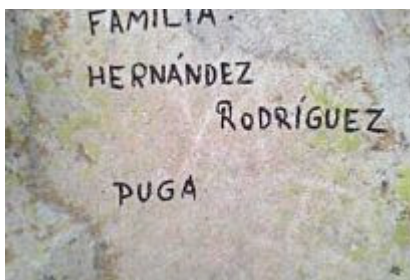 FAMILIA.
HERNÁNDEZ
RODRÍGUEZ
PUGA